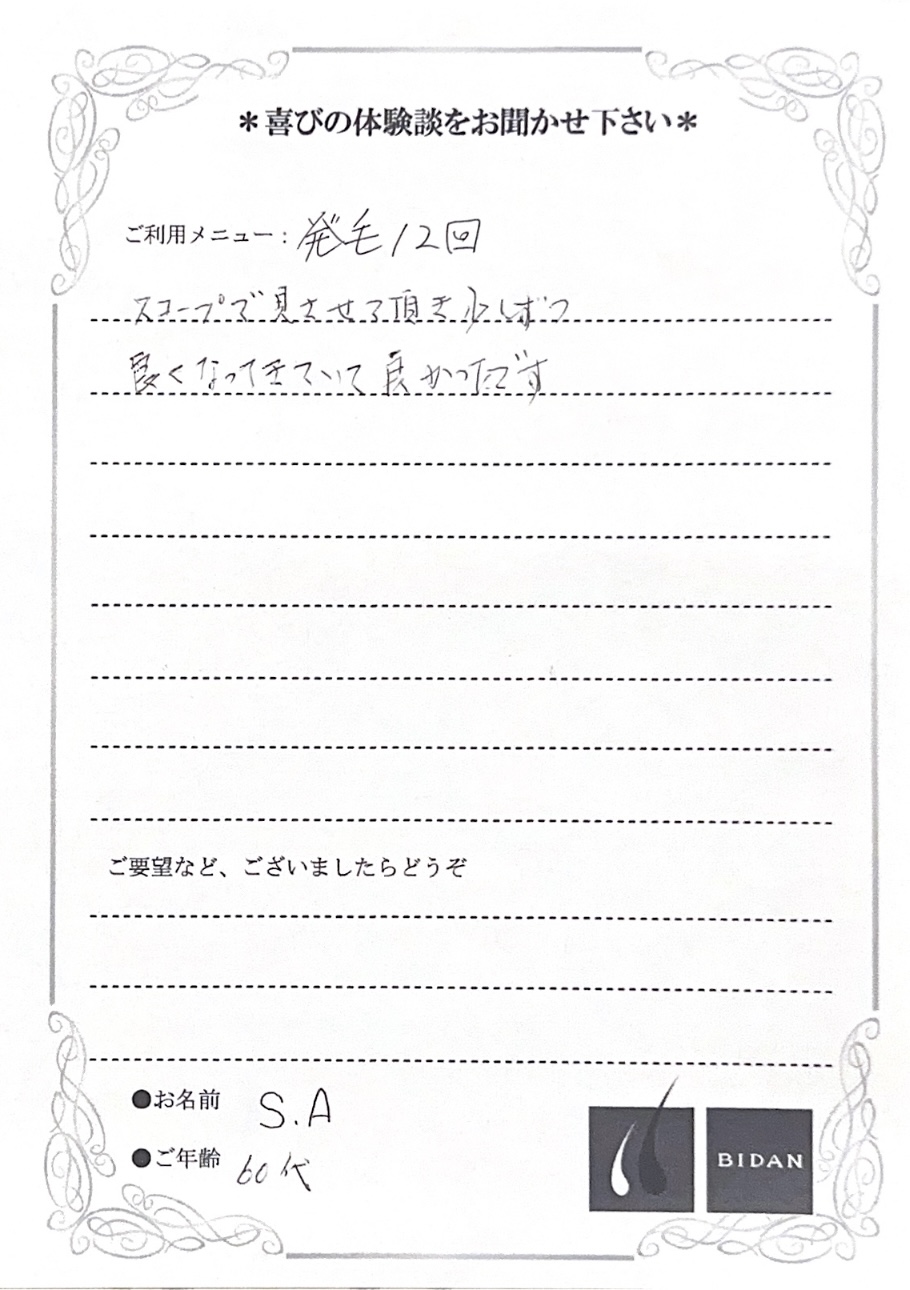 ＊喜びの体験談をお聞かせ下さい＊
ご利用メニュー：発毛12回
スコープで見させて頂き少しずつ
良くなってきていて良かったです
ご要望など、ございましたらどうぞ
●お名前 S.A
●ご年齢 60代
BIDAN